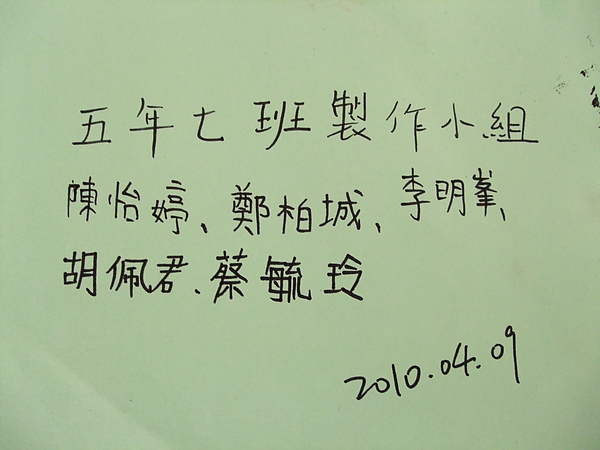 五年七班製作小組
陳怡婷、鄭柏城、李明峯、
胡佩君、蔡毓玲
2010.04.09